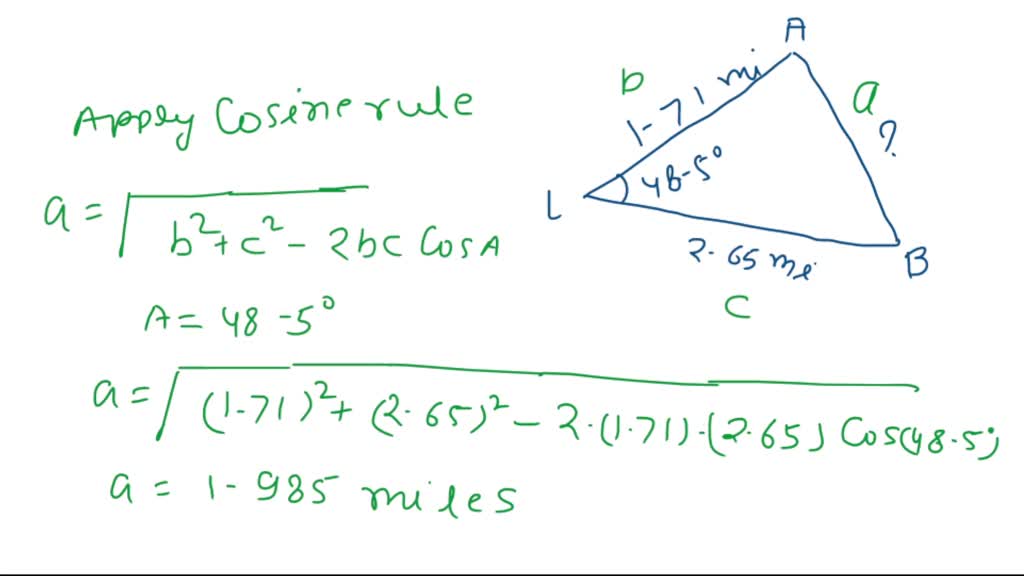 Apply Cosine rule
a = √b²+c² - 2bc CosA
A = 48.5°
a = √(1.71)²+ (2.65)² - 2·(1.71)·(2.65) Cos(48.5)
a = 1.985 miles
A
b
1.71 mi
a
?
48.5°
L
2.65 mi
B
C